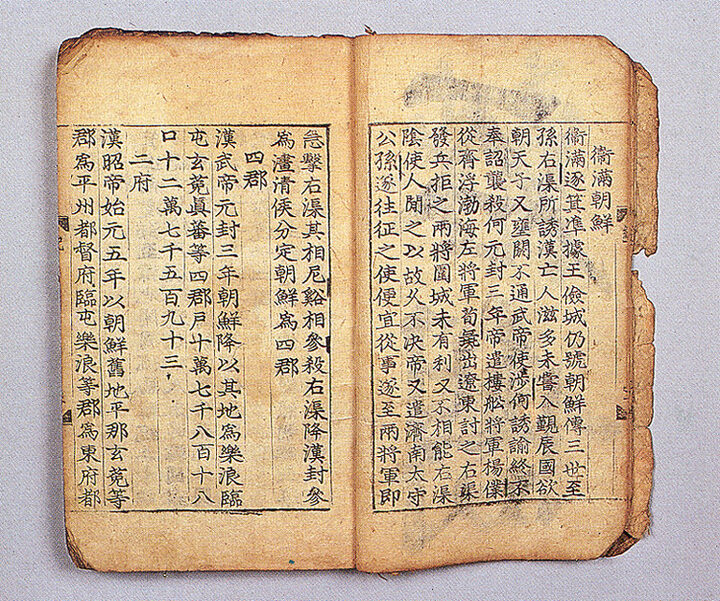 衛滿朝鮮
衛滿逐箕準據王儉城仍號朝鮮傳三世至
孫右渠所誘漢亡人滋多未嘗入覲辰國欲
朝天子又壅閼不通武帝使涉何誘諭終不
奉詔襲殺何元封三年帝遣樓舩將軍楊僕
從齊浮渤海左將軍荀彘出遼東討之右渠
發兵拒之兩將圍城未有利又不相能右渠
陰使人聞之以故久不決帝又遣濟南太守
公孫遂往征之使便宜從事遂至兩將軍即
急擊右渠其相尼谿相參殺右渠降漢封參
為澅清侯分定朝鮮為四郡
四郡
漢武帝元封三年朝鮮降以其地為樂浪臨
屯玄菟眞蕃等四郡戶十萬七千八百十八
口十二萬七千五百九十三
二府
漢昭帝始元五年以朝鮮舊地平那玄菟等
郡為平州都督府臨屯樂浪等郡為東府都